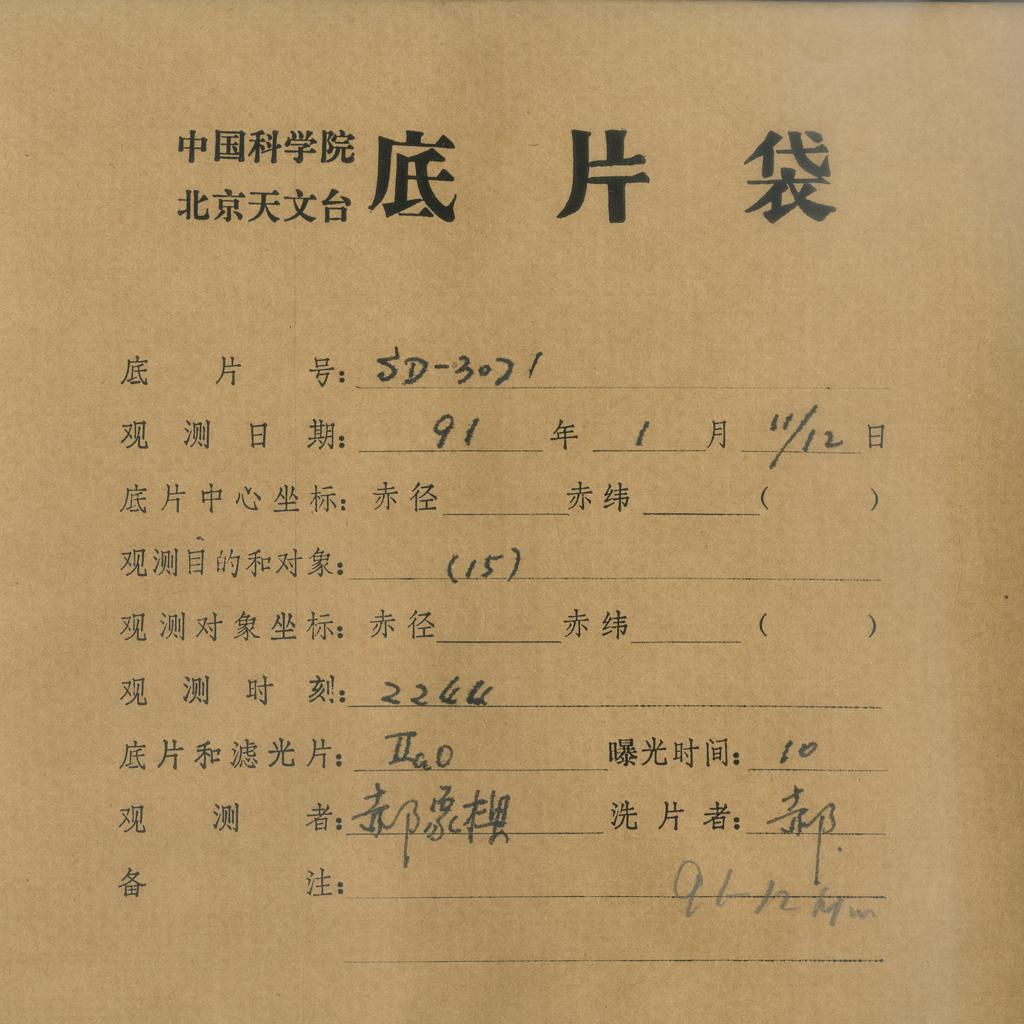 中国科学院
北京天文台
底片袋
底片号：SD-3071
观测日期：91年1月11/12日
底片中心坐标：赤径 赤纬 （ ）
观测目的和对象：(15)
观测对象坐标：赤径 赤纬 （ ）
观测时刻：2244
底片和滤光片：IIaO 曝光时间：10
观测者：郝象 洗片者：郝
备注：